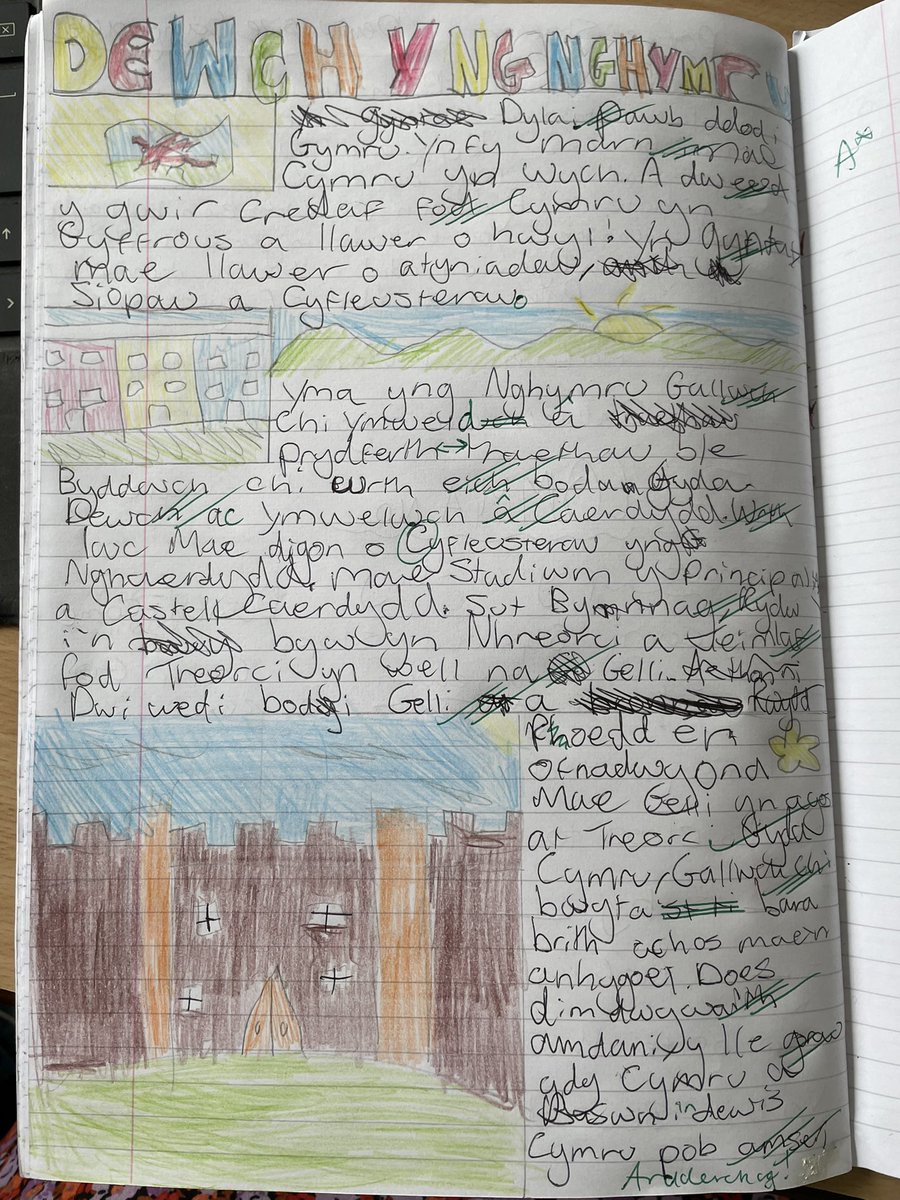 DEWCH YNG NGHYMRU
Dylai Pawb ddod i
Gymru. Yn fy marn i mae
Cymru yn wych. A dweud
y gwir Credaf fod Cymru yn
Gyffrous a llawer o hwyl! Yn gyntaf
mae llawer o atyniadau,
Siopau a Cyfleusterau.
yma yng Nghymru Gallwch
chi ymweld â
prydferth ↔ traethau ble
Byddwch chi wrth eich bodd
Dewch ac ymwelwch â Caerdydd.
Mae digon o Cyfleusterau yng
Nghaerdydd. mae Stadiwm y Principality
a Castell Caerdydd. Sut Bynnag, Rydw
i'n byw yn Nhreorci a teimlaf
fod Treorci yn well na Gelli.
Dwi wedi bod i Gelli a Roedd
en
Ofnadwy ond
Mae Gelli yn agos
at Treorci. Gyda
Cymru, Gallwch chi
bwyta bara
brith achos maen
anhygoel. Does
dim dwywaith
amdani, y lle gorau
ydy Cymru a
Baswn in dewis
Cymru pob amser
Ardderchog!
A**